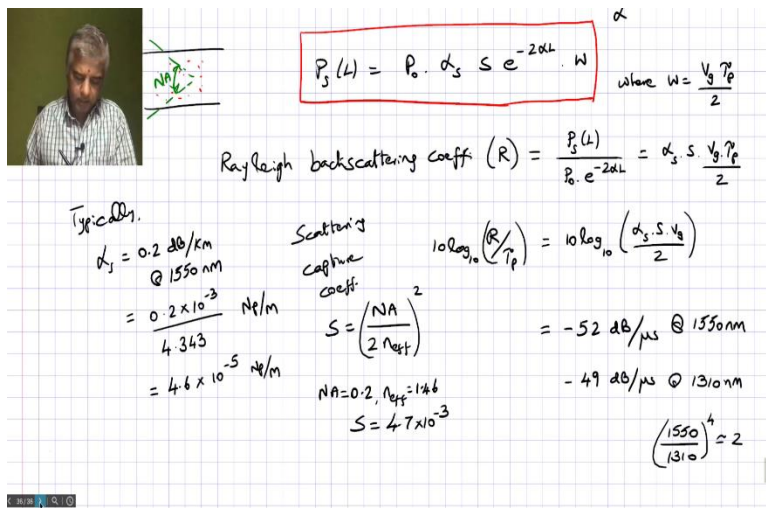 α
NA
P_s(L) = P_o . α_s S e^{-2αL} . W
where W = V_g τ_p / 2
Rayleigh backscattering coeff. (R) = P_s(L) / P_o . e^{-2αL} = α_s . S . V_g . τ_p / 2
Typically,
α_s = 0.2 dB/km
@ 1550 nm
= 0.2 × 10^{-3} / 4.343 Np/m
= 4.6 × 10^{-5} Np/m
Scattering
capture
coeff.
S = (NA / 2 n_eff)^2
NA = 0.2, n_eff = 1.46
S = 4.7 × 10^{-3}
10 log_10 (R/τ_p) = 10 log_10 (α_s . S . V_g / 2)
= -52 dB/μs @ 1550nm
- 49 dB/μs @ 1310nm
(1550 / 1310)^4 ≈ 2
38/38